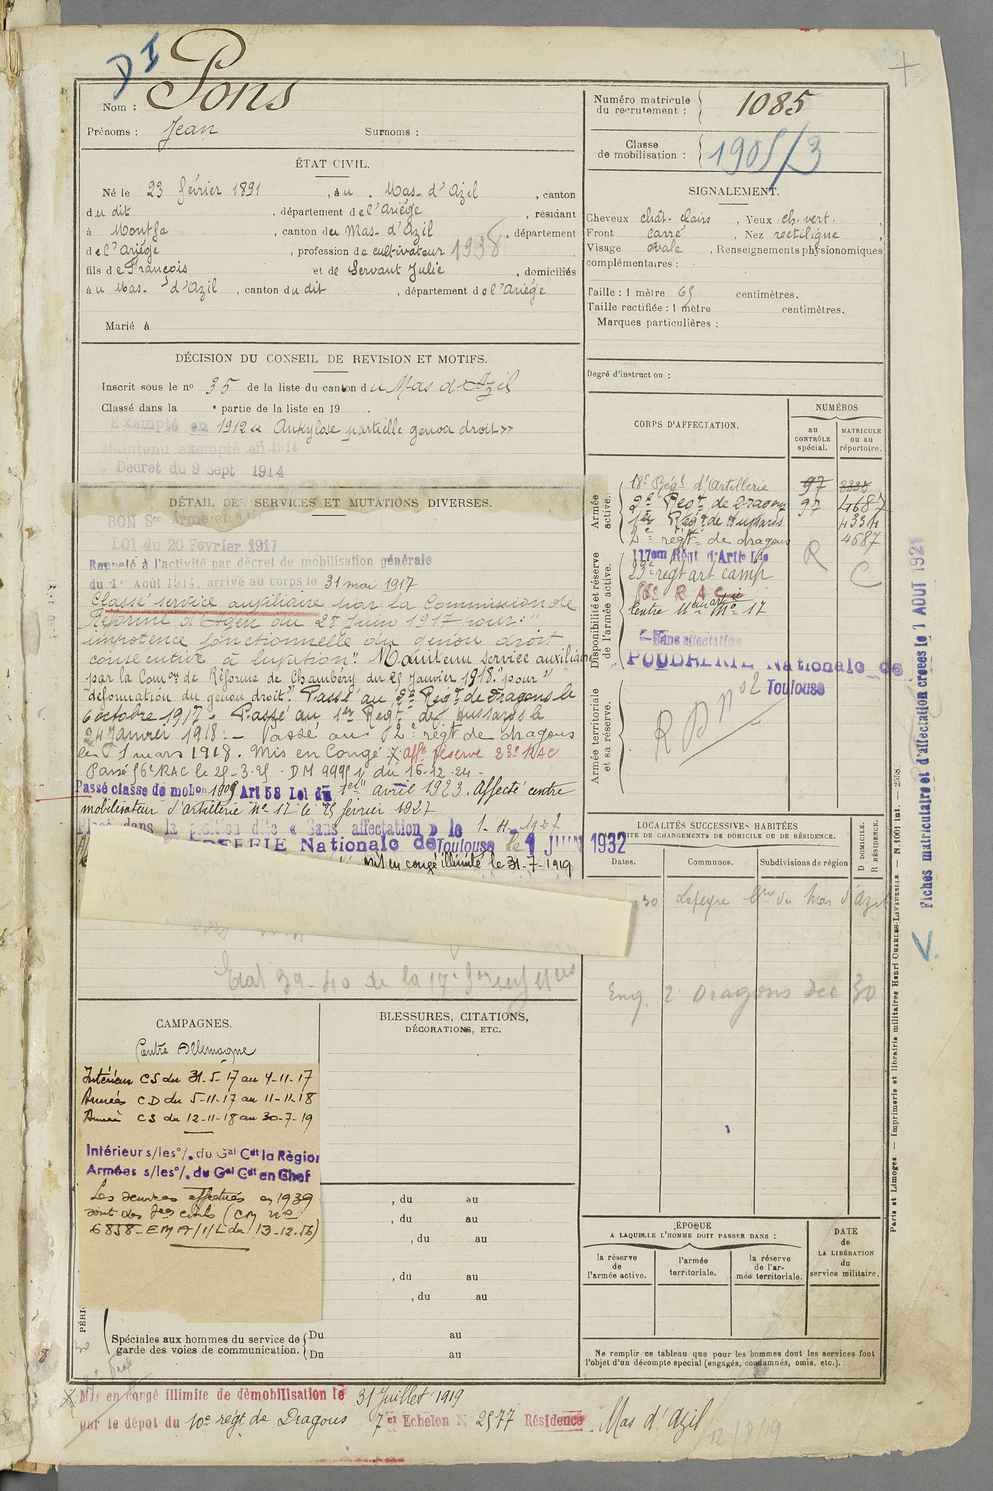 DI
Nom : Pons
Prénoms : Jean Surnoms :
ÉTAT CIVIL.
Né le 23 février 1891, à u Mas-d'Azil, canton
du dit, département de l'Ariège, résidant
à Montfa, canton du Mas-d'Azil, département
de l'Ariège, profession de cultivateur 1938
fils de François et de Servant Julie, domiciliés
à u Mas-d'Azil, canton du dit, département de l'Ariège
Marié à
DÉCISION DU CONSEIL DE REVISION ET MOTIFS.
Inscrit sous le nº 35 de la liste du canton du Mas d'Azil
Classé dans la e partie de la liste en 19
Exempté en 1912 « Ankylose partielle genou droit »
Maintenu exempté en 1914
Decret du 9 Sept 1914
DÉTAIL DES SERVICES ET MUTATIONS DIVERSES.
BON Sce Armé en
LOI du 20 Fevrier 1917
Rappelé à l'activité par décret de mobilisation générale
du 1er Août 1914, arrivé au corps le 31 mai 1917
Classé service auxiliaire par la Commission de
Réforme d'Agen du 27 Juin 1917 pour: "
impotence fonctionnelle du genou droit
consécutive à luxation". Maintenu service auxiliaire
par la Comon de Réforme de Chambéry du 25 Janvier 1918. "pour"
"déformation du genou droit". Passé au 2e Regt de Dragons le
6 octobre 1917. Passé au 1er Regt de Hussards le
24 Janvier 1918. - Passé au 2e régt de dragons
le 1 mars 1918. Mis en Congé X aff réserve 23e RAC
Passé 56e RAC le 29-3-25 - DM 9995 1/ du 16-12-24 -
Passé classe de mobon 1909 Art 58 Loi du 1er avril 1923. Affecté centre
mobilisateur d'artillerie nº 17 le 25 février 1927
Placé dans la position dite « Sans affectation » le 1-11-1927
POUDRERIE Nationale de Toulouse le 1 JUIN 1932
mis en congé illimité le 31-7-1919
Etat 39-40 de la 17e
CAMPAGNES.
Contre Allemagne
Intérieur CS du 31-5-17 au 4-11-17
Armées CD du 5-11-17 au 11-11-18
Armée CS du 12-11-18 au 30-7-19
Intérieur s/les º/. du Gal Cdt la Région
Armées s/les º/. du Gal Cdt en Chef
Les services effectués en 1939
sont des sces civils (CM nº
6858-EMA/1/L du 13-12-56)
BLESSURES, CITATIONS,
DÉCORATIONS, ETC.
, du au
, du au
, du au
, du au
, du au
Spéciales aux hommes du service de
garde des voies de communication.
Du au
Du au
X Mis en congé illimité de démobilisation le 31 Juillet 1919
par le dépot du 10e régt de Dragons 7er Echelon N 2577 Résidence Mas d'Azil
12/8/19
Numéro matricule
du recrutement : 1085
Classe
de mobilisation : 1905/3
SIGNALEMENT.
Cheveux chât. clairs, Yeux ch. vert.
Front carré, Nez rectiligne
Visage ovale, Renseignements physionomiques
complémentaires :
Taille : 1 mètre 65 centimètres.
Taille rectifiée : 1 mètre centimètres.
Marques particulières :
Degré d'instruction :
CORPS D'AFFECTATION.
NUMÉROS
au
CONTRÔLE
spécial.
MATRICULE
ou au
répertoire.
Armée
active.
18e Régt d'Artillerie 97
2e Regt de Dragons 97 4687
1er Régt de Hussards 4334
2e régt de dragons 4687
R C
Disponibilité et réserve
de l'armée active.
117em Régt d'Artie Lde
23e régt art camp
56e R A C
Centre Mon artie Nº 17
Sans affectation
POUDRERIE Nationale de
Toulouse
Armée territoriale
et sa réserve.
R D nº 2
LOCALITÉS SUCCESSIVES HABITÉES
SUITE DE CHANGEMENTS DE DOMICILE OU DE RÉSIDENCE.
Dates. Communes. Subdivisions de région
D. DOMICILE.
R. RÉSIDENCE.
30 du Mas d'Azil
Enq. 2 Dragons Dec 30
ÉPOQUE
A LAQUELLE L'HOMME DOIT PASSER DANS :
la réserve
de
l'armée active.
l'armée
territoriale.
la réserve
de l'ar-
mée territoriale.
DATE
de
LA LIBÉRATION
du
service militaire.
Ne remplir ce tableau que pour les hommes dont les services font
l'objet d'un décompte spécial (engagés, condamnés, omis, etc.).
Paris et Limoges. — Imprimerie et librairie militaires Henri CHARLES-LAVAUZELLE. — N. 1001 Int.
Fiches matriculaire et d'affectation creees le 1 AOUT 1921